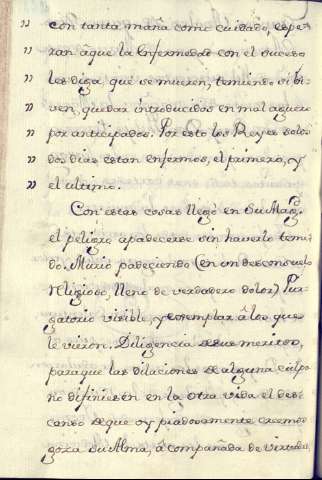 " con tanta maña como cuidado, espe-
" ran âque la Enfermedad con el suceso
" les diga que se mueren, temiendo si bi-
" ven, quedar introducidos en mal aguero
" por anticipados. Por esto los Reyes solo
" dos dias estan enfermos, el primero, y
" el ultimo.
Con estas cosas llegò en Su Mag.
el peligro apadecerse sin haverlo temi-
do. Murió padeciendo (en un desconsuelo
religioso, lleno de verdadero dolor) Pur-
gatorio visible, y exemplar â los que
le vieron. Diligencia de sus meritos,
para que las dilaciones de alguna culpa
no difiriesen en la otra vida el des-
canso de que oy piadosamente creemos
goza su Alma, acompañada de virtudes,